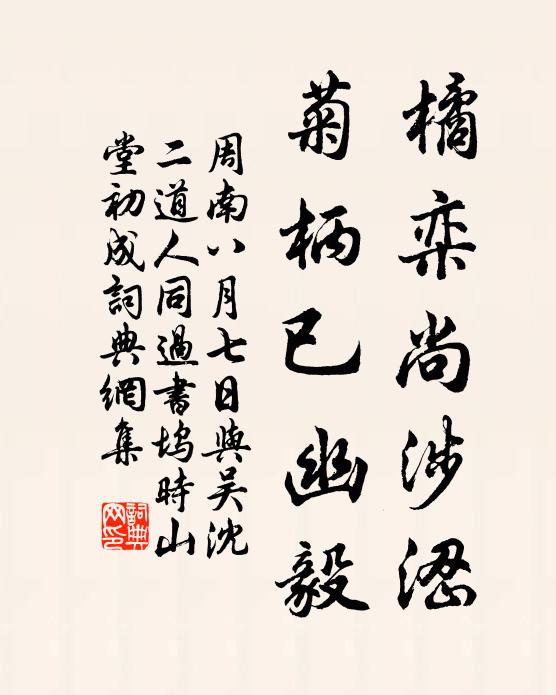 橘栾尚涉
菊柄已幽毅
周南八月七日與吴沈
二道人同過書塢時山
堂初成詞典網集
詞典
网印